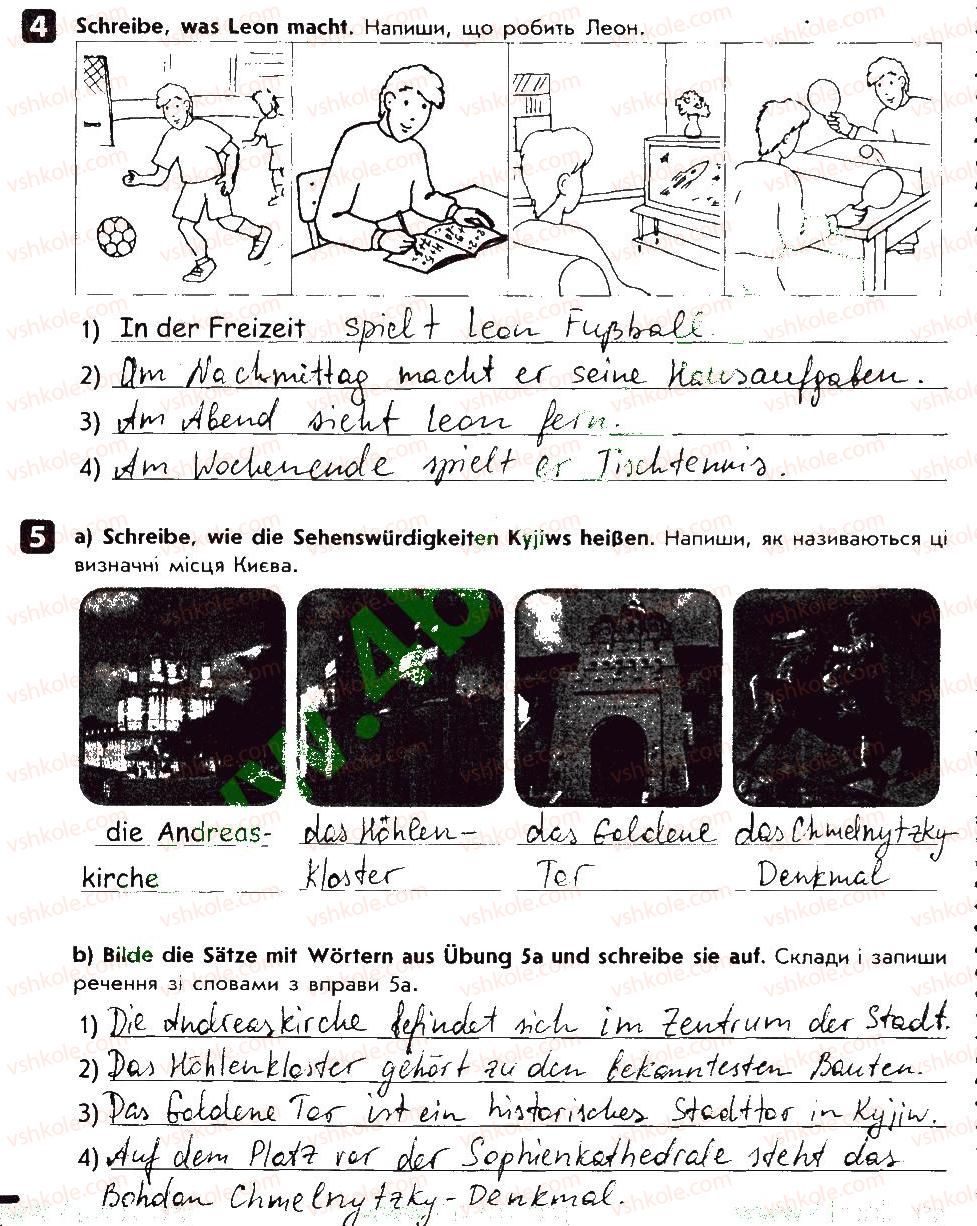 4 Schreibe, was Leon macht. Напиши, що робить Леон.
1) In der Freizeit spielt Leon Fußball.
2) Am Nachmittag macht er seine Hausaufgaben.
3) Am Abend sieht Leon fern.
4) Am Wochenende spielt er Tischtennis.
5 a) Schreibe, wie die Sehenswürdigkeiten Kyjiws heißen. Напиши, як називаються ці
визначні місця Києва.
die Andreas- das Höhlen- das Goldene das Chmelnytzky-
kirche kloster Tor Denkmal
b) Bilde die Sätze mit Wörtern aus Übung 5a und schreibe sie auf. Склади і запиши
речення зі словами з вправи 5a.
1) Die Andreaskirche befindet sich im Zentrum der Stadt.
2) Das Höhlenkloster gehört zu den bekanntesten Bauten.
3) Das Goldene Tor ist ein historisches Stadttor in Kyjiw.
4) Auf dem Platz vor der Sophienkathedrale steht das
Bohdan Chmelnytzky-Denkmal.
vshkole.com